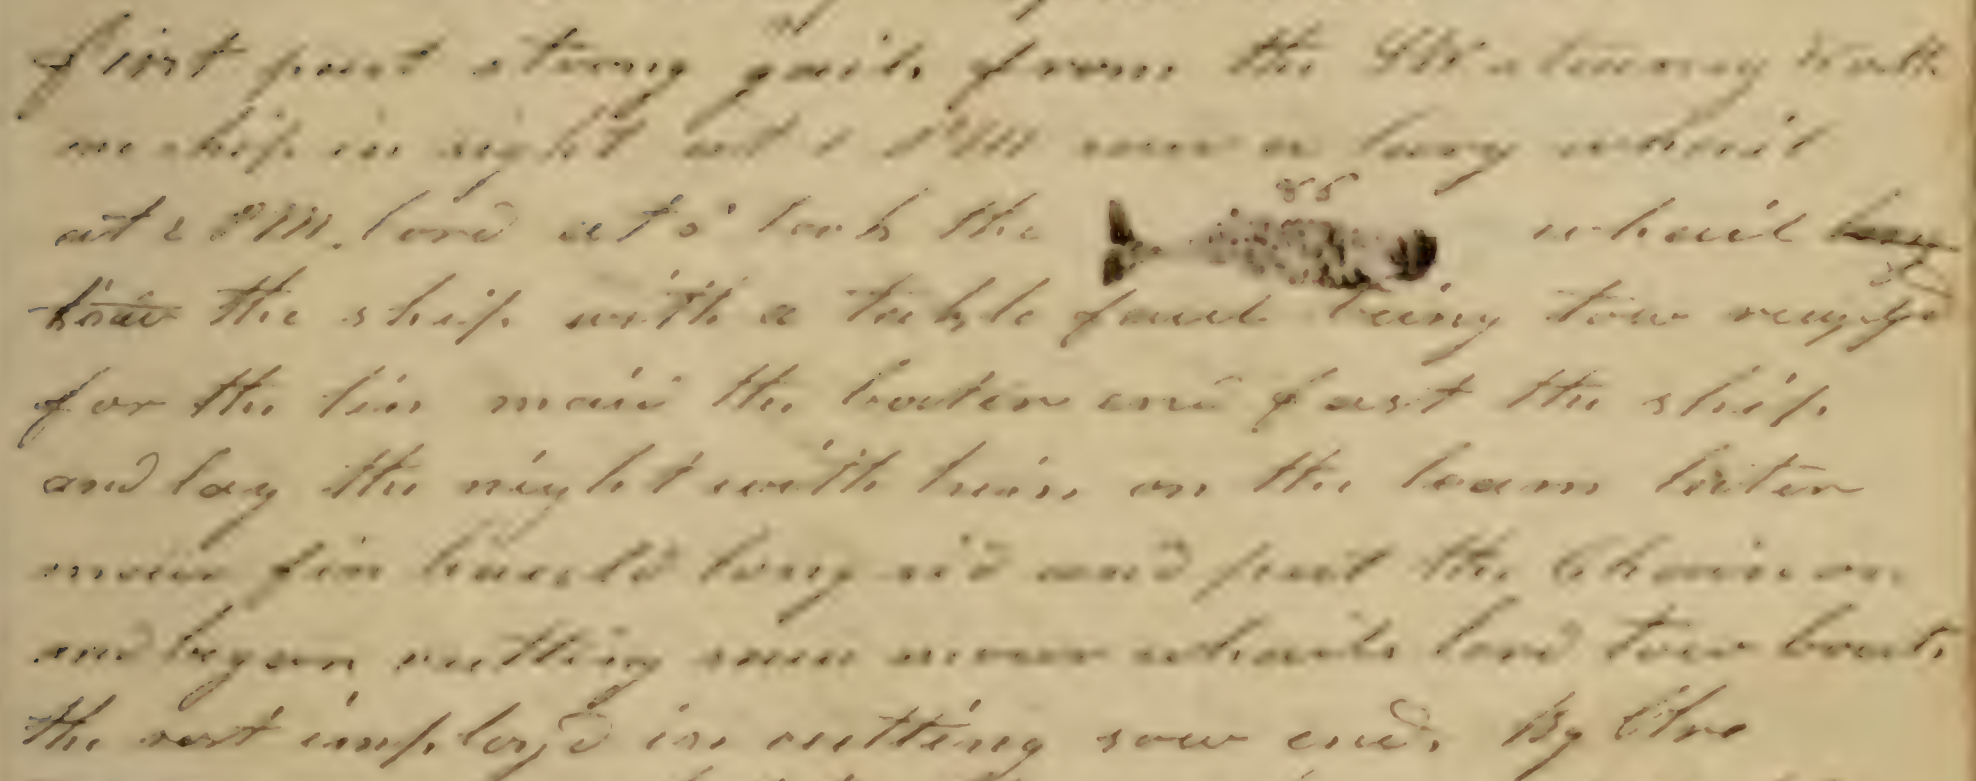 first part strong gails from the SW stearing North
one ship in sight at 1 PM saw a larg whail
at 2 PM lord at 3 took the 85 whail
the ship with a takle fawl being tow rugged
for the fin maid the boten end fast the ship
and lay the night with him on the beam
fin haveld long sid and put the Chain on
and began cutting saw more whails lord tow boats
the rest imployd in cutting sow ends By